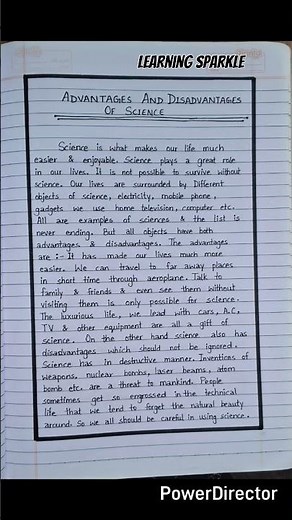 LEARNING SPARKLE
ADVANTAGES AND DISADVANTAGES
OF SCIENCE
Science is what makes our life much
easier & enjoyable. Science plays a great role
in our lives. It is not possible to survive without
science. Our lives are surrounded by Different
objects of science, electricity, mobile phone,
gadgets we use home television, computer etc.
All are examples of sciences & the list is
never ending. But all objects have both
advantages & disadvantages. The advantages
are :- It has made our lives much more
easier. We can travel to far away places
in short time through aeroplane. Talk to
family & friends & even see them without
visiting them is only possible for science.
The luxurious life, we lead with cars, A.C,
TV & other equipment are all a gift of
science. On the other hand science also has
disadvantages which should not be ignored.
Science has in destructive manner. Inventions of
weapons, nuclear bombs, laser beams, atom
bomb etc. are a threat to mankind. People
sometimes get so engrossed in the technical
life that we tend to forget the natural beauty
around. So we all should be careful in using science.
PowerDirector